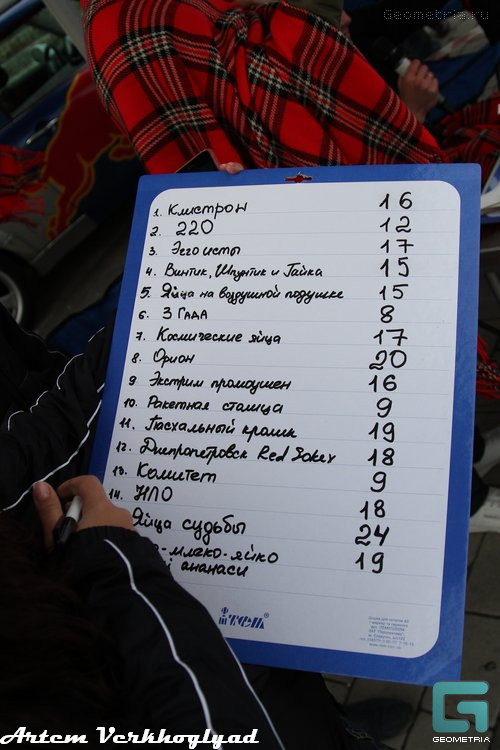 Geometria.ru
1. Клистрон 16
2. 220 12
3. Эггоисты 17
4. Винтик, Шпунтик и Гайка 15
5. Яйца на воздушной подушке 15
6. 3 Гада 8
7. Космические яйца 17
8. Орион 20
9 Экстрим промоушен 16
10. Ракетная столица 9
11. Пасхальный кролик 19
12. Днипропетровск Red Sokix 18
13. Комитет 9
14. НЛО 18
Яйца судьбы 24
-млеко-яйко 19
ананаси
Artem Verkhoglyad
GEOMETRIA